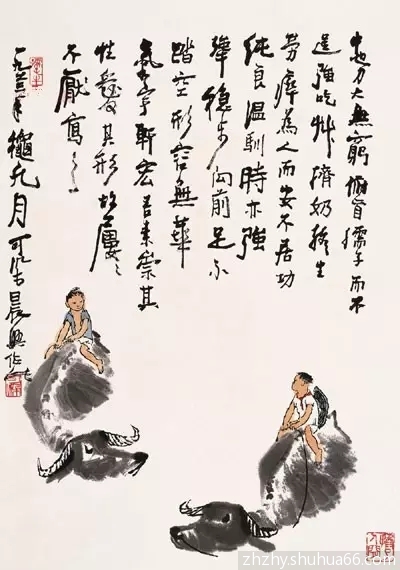 牛也力大無窮俯首孺子而不
逞強吃艸擠奶終生
勞瘁爲人而安不居功
純良温馴時亦強
犟穩步向前足不
踏空形容無華
氣宇軒宏吾素崇其
性愛其形故屢々
不厭寫之
一九六三年龝九月可染晨興作
zhzhy.shuhua66.com